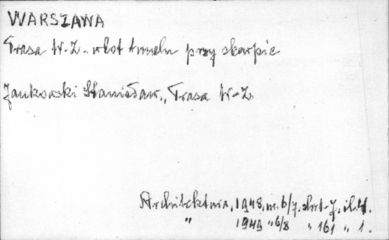 WARSZAWA
Trasa W-Z - wlot tunelu przy skarpie
Jankowski Stanisław, "Trasa W-Z
Architektura, 1948, nr. 6/7, str. il.
" 1949 " 6/8 " 161 " 1.